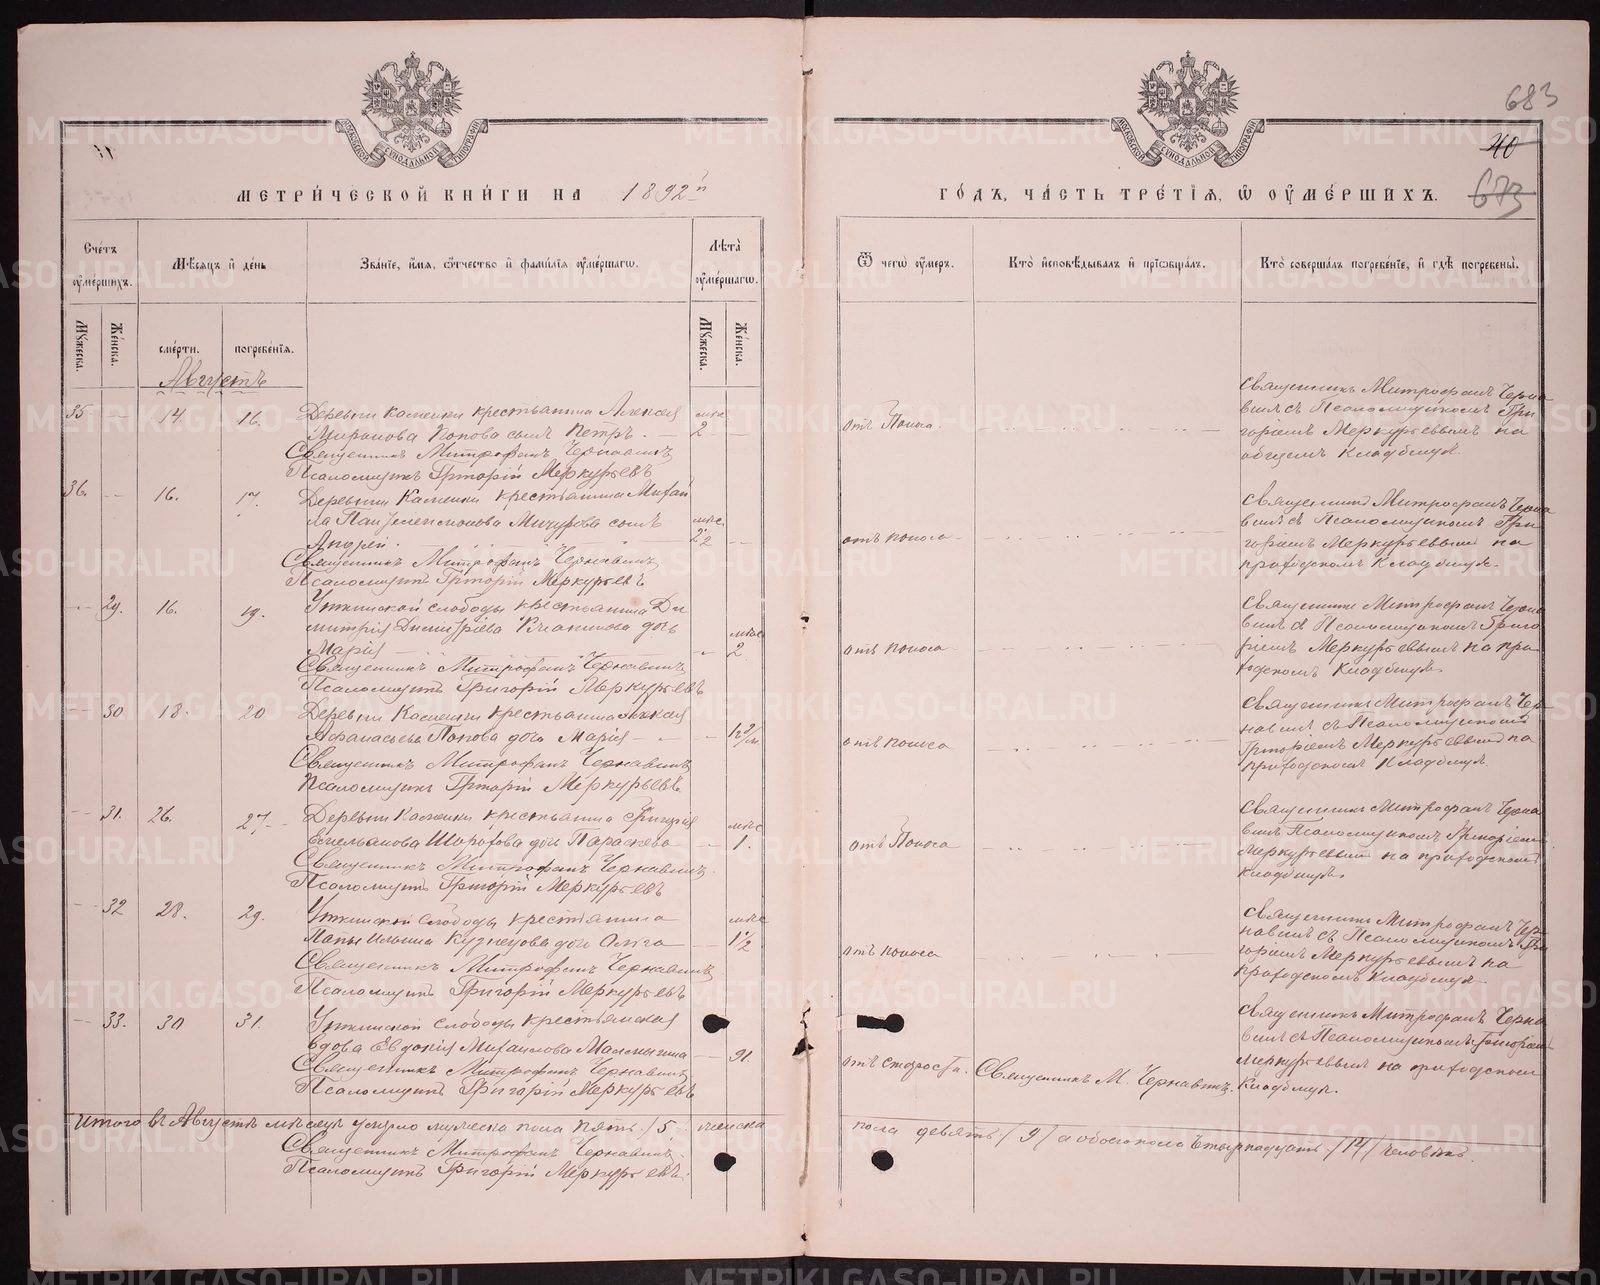 683
40
673
МЕТРИ́ЧЕСКОЙ КНИ́ГИ НА 1892й
ГО́ДЪ, ЧА́СТЬ ТРЕ́ТІЯ, Ѿ ОУ҆МЕ́РШИХЪ.
Сче́тъ оу҆ме́ршихъ.
Мѣ́сяцъ и҆ де́нь
Зва́ніе, и҆́мя, ѻ҆́тчество и҆ фами́лія оу҆ме́ршагѡ.
Лѣта̀ оу҆ме́ршагѡ.
Ѿ чегѡ̀ оу҆́меръ.
Кто̀ и҆сповѣ́дывалъ и҆ прїѡбща́лъ.
Кто̀ соверша́лъ погребе́ніе, и҆ гдѣ̀ погребены̀.
Му́жеска.
Же́нска.
сме́рти.
погребе́нія.
Му́жеска.
Же́нска.
Августъ
35 14 16. Деревни Каменки крестьянина Алексія
Миронова Попова сынъ Петръ. 2 отъ Поноса
Священникъ Митрофанъ Чернавинъ
Псаломщикъ Григорій Меркурьевъ
Священникъ Митрофанъ Черна
винъ съ Псаломщикомъ Гри
горіемъ Меркурьевымъ на
общемъ Кладбищѣ.
36. 16. 17. Деревни Каменки крестьянина Михаи
ла Пантелеимонова Мичурова сынъ
Андрей отъ поноса
Священникъ Митрофанъ Чернавинъ
Псаломщикъ Григорій Меркурьевъ
Священникъ Митрофанъ Черна
винъ съ Псаломщикомъ Гри
горіемъ Меркурьевымъ на
приходскомъ Кладбищѣ.
29. 16. 19. Уткинской слободы крестьянина Ди
митрія Димитріева дочь
Марія 2 отъ поноса
Священникъ Митрофанъ Чернавинъ
Псаломщикъ Григорій Меркурьевъ
Священникъ Митрофанъ Черна
винъ съ Псаломщикомъ Григо
ріемъ Меркурьевымъ на при
ходскомъ Кладбищѣ
30 18. 20 Деревни Каменки крестьянина Алексія
Афанасьева Попова дочь Марія отъ поноса
Священникъ Митрофанъ Чернавинъ
Псаломщикъ Григорій Меркурьевъ
Священникъ Митрофанъ Чер
навинъ съ Псаломщикомъ
Григоріемъ Меркурьевымъ на
приходскомъ Кладбищѣ.
31. 26. 27. Деревни Каменки крестьянина Григорія
Емельянова Шорохова дочь Параскева 1. отъ Поноса
Священникъ Митрофанъ Чернавинъ
Псаломщикъ Григорій Меркурьевъ
Священникъ Митрофанъ Черна
винъ Псаломщикомъ Григоріемъ
Меркурьевымъ на приходскомъ
Кладбищѣ.
32 28. 29. Уткинской Слободы крестьянина
Ильина Кузнецова дочь Ольга 1½ отъ поноса
Священникъ Митрофанъ Чернавинъ
Псаломщикъ Григорій Меркурьевъ
Священникъ Митрофанъ Чер
навинъ съ Псаломщикомъ Гри
горіемъ Меркурьевымъ на
приходскомъ Кладбищѣ
33. 30 31. Уткинской слободы крестьянская
вдова Евдокія Михаилова Мамыгина 91. отъ старости. Священникъ М. Чернавинъ.
Священникъ Митрофанъ Чернавинъ
Псаломщикъ Григорій Меркурьевъ
Священникъ Митрофанъ Черна
винъ съ Псаломщикомъ Григоріемъ
Меркурьевымъ на приходскомъ
Кладбищѣ.
Итого въ Августѣ мѣсяцѣ умерло мужеска пола пять /5/ женска
пола девять /9/ а обоего пола четырнадцать /14/ человѣкъ.
Священникъ Митрофанъ Чернавинъ.
Псаломщикъ Григорій Меркурьевъ.
METRIKI.GASO-URAL.RU